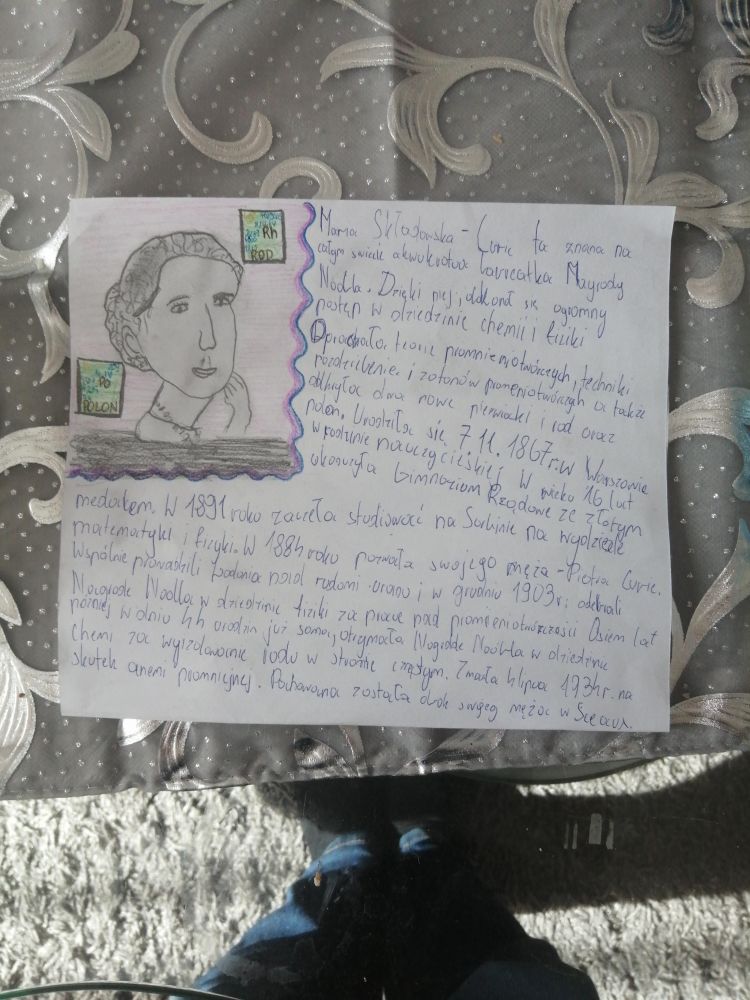 Rh
ROD
Po
POLON
Maria Skłodowska - Curie ta znana na
całym świecie dwukrotna laureatka Nagrody
Nobla. Dzięki niej, dokonał się ogromny
postęp w dziedzinie chemii i fizyki
Opracowała teorie promieniotwórczych, techniki
rozdzielenie i zotonów promieniotwórczych a także
odkryła dwa nowe pierwiastki i rad oraz
polon. Urodziła się 7 11. 1867r. w Warszawie
w rodzinie nauczycielskiej W wieku 16 lat
ukończyła Gimnazjum Rządowe ze złotym
medalem. W 1891 roku zaczęła studiować na Sorbinie na wydziale
matematyki i fizyki. W 1884 roku poznała swojego męża - Piotra Curie.
Wspólnie prowadzili badania nad rudami uranu i w grudniu 1903r; odebrali
Nagrodę Nobla w dziedzinie fizyki za prace nad promieniotwórczości Osiem lat
później w dniu 44 urodzin już sama, otrzymała Nagrodę Nobla w dziedzinie
chemi za wyizolowanie radu w stronie czystym. Zmarła 4 lipca 1934r. na
skutek anemi promnicyjnej. Pochowana została obok swojeg męża w Sceaux.